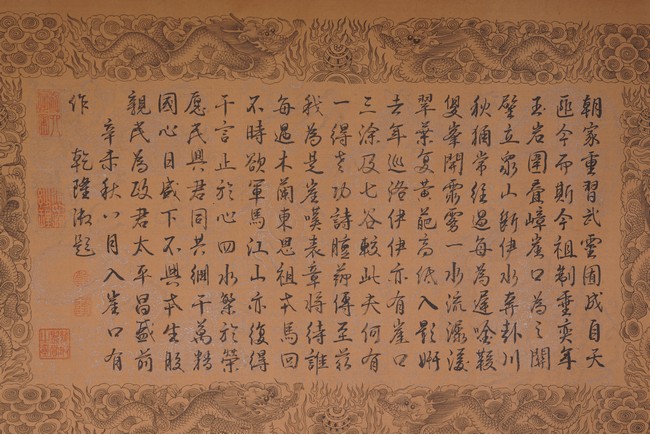 朝家重習武靈囿成自天
匪今而斯今祖制重奕年
玉岩圍疊嶂崖口為之關
壁立眾山斷伊水奔赴川
狄獮常經過每為遲吟鞍
雙峯開霏雰一水流潺湲
翠葉復黃葩高低入影妍
去年巡洛伊伊亦有崖口
三涂及七谷較此夫何有
一得老功詩膾薌傳至茲
我為是崖嘆表章將待誰
每過木蘭東思祖本馬回
不時欲軍馬江山亦復得
干言止於心四水繁於榮
應民興君同共綱干萬精
國心日盛下不興本生股
親民為政君太平昌盛前
辛未秋八月入崖口有
作 乾隆御題